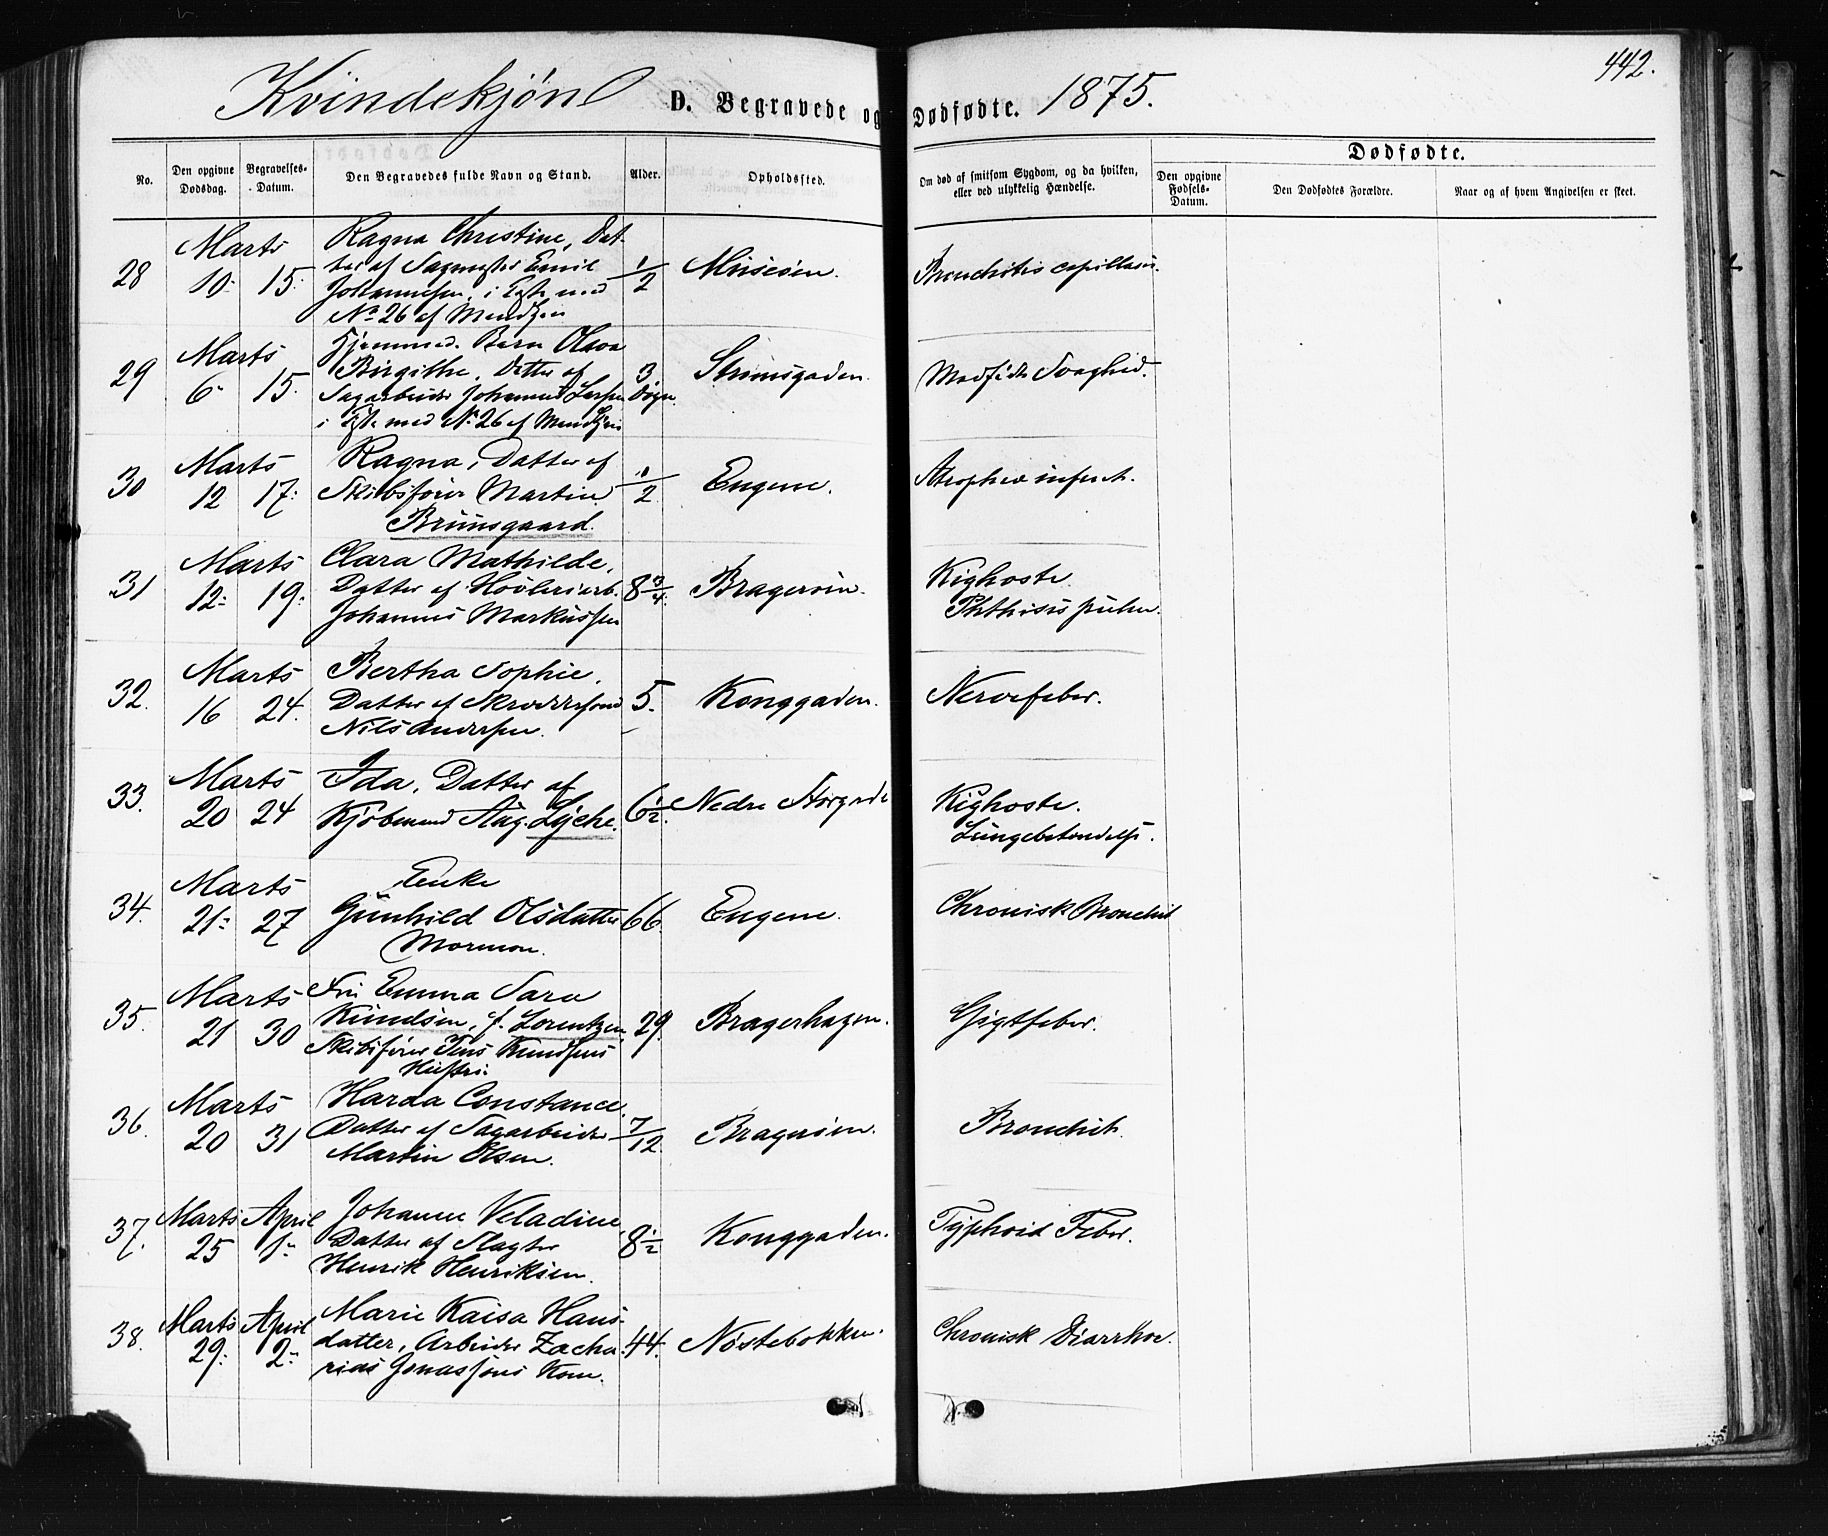 442.
Kvindekjøn D. Begravede og Dødfødte. 1875.
No.
Den opgivne Dødsdag.
Begravelses-Datum.
Den Begravedes fulde Navn og Stand.
Alder.
Opholdssted.
Om død af smitsom Sygdom, og da hvilken,
eller ved ulykkelig Hændelse.
Dødfødte.
Den opgivne Fødsels-Datum.
Den Dødfødtes Forældre.
Naar og af hvem Angivelsen er skeet.
28 Marts 10 15. Ragna Christine, Dat-
ter af Sagmester Emil
Johannessen, i
No 26 af
1/2
Bronchitis capillaris.
29 Marts 6 15. Hjemmed. Barn
Birgithe, Datter af
Sagarbeider Johannes
med No 26 af
3 Døgn. Strømsgaden. Medfødt Svaghed.
30 Marts 12 17. Ragna, Datter af
Skibsfører Martin
Bruusgaard.
1/2 Engene. Atrophia infant.
31 Marts 12 19. Clara Mathilde,
Datter af Høvleriarb.
Johannes Markussen
8 3/4. Bragerøen. Kighoste.
Phthisis pulm.
32. Marts 16 24. Bertha Sophie,
Datter af
Nils Andersen.
5. Konggaden. Nervefeber.
33. Marts 20 24 Ida, Datter af
Kjøbmand Aug. Lyche.
6 1/2. Nedre Storgade Kighoste.
Lungebetændelse.
34. Marts 21 27 Enke
Gunhild Olsdatter
Mormon.
66. Engene. Chronisk Bronchit
35. Marts 21 30 Fru Emma Sara
Knudsen, f. Lorentzen,
Skibsfører Jens Knudsens
Hustru.
29. Bragerhagen. Gigtfeber.
36. Marts 20 31 Harda Constance,
Datter af Sagarbeider
Martin Olsen.
7/12. Bragerøen. Bronchit.
37. Marts 25 April 1 Johanne Veladine,
Datter af Slagter
Henrik Henriksen.
8 1/2 Konggaden. Typhoid Feber.
38. Marts 29 April 2 Marie Kaisa Hans-
datter, Arbeider Zacha-
rias Jonassons Kone.
44. Nøstebakken. Chronisk Diarrhoe.